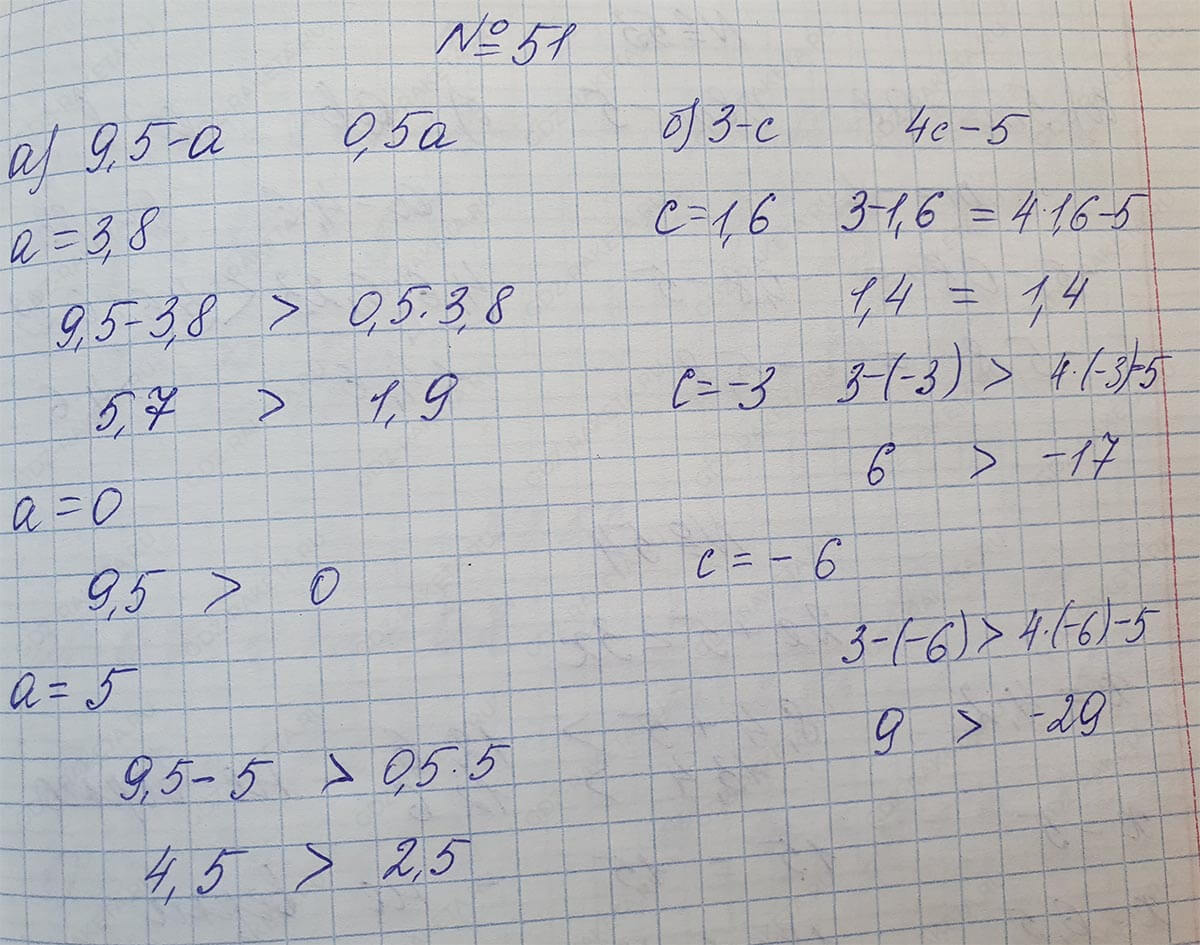 №51
а) 9,5-a 0,5a
a=3,8
9,5-3,8 > 0,5·3,8
5,7 > 1,9
a=0
9,5 > 0
a=5
9,5-5 > 0,5·5
4,5 > 2,5
б) 3-c 4c-5
c=1,6 3-1,6 = 4·1,6-5
1,4 = 1,4
c=-3 3-(-3) > 4·(-3)-5
6 > -17
c=-6
3-(-6) > 4·(-6)-5
9 > -29